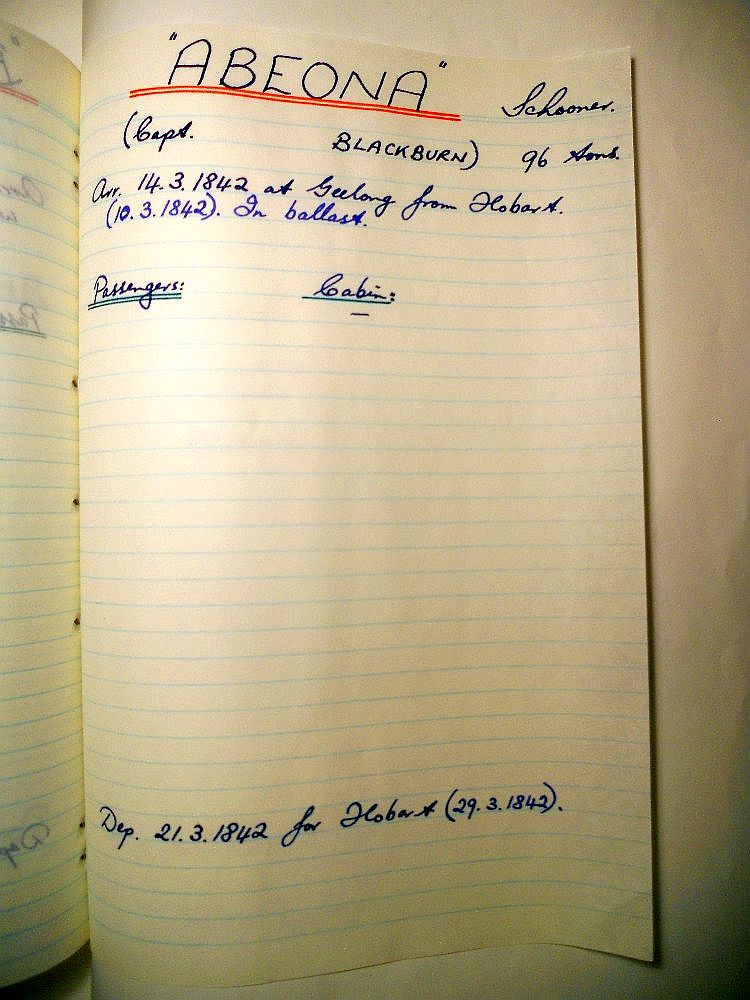 "ABEONA" Schooner.
(Capt. BLACKBURN) 96 tons.
Arr. 14.3.1842 at Geelong from Hobart.
(10.3.1842). In ballast.
Passengers: Cabin:
—
Dep. 21.3.1842 for Hobart (29.3.1842).